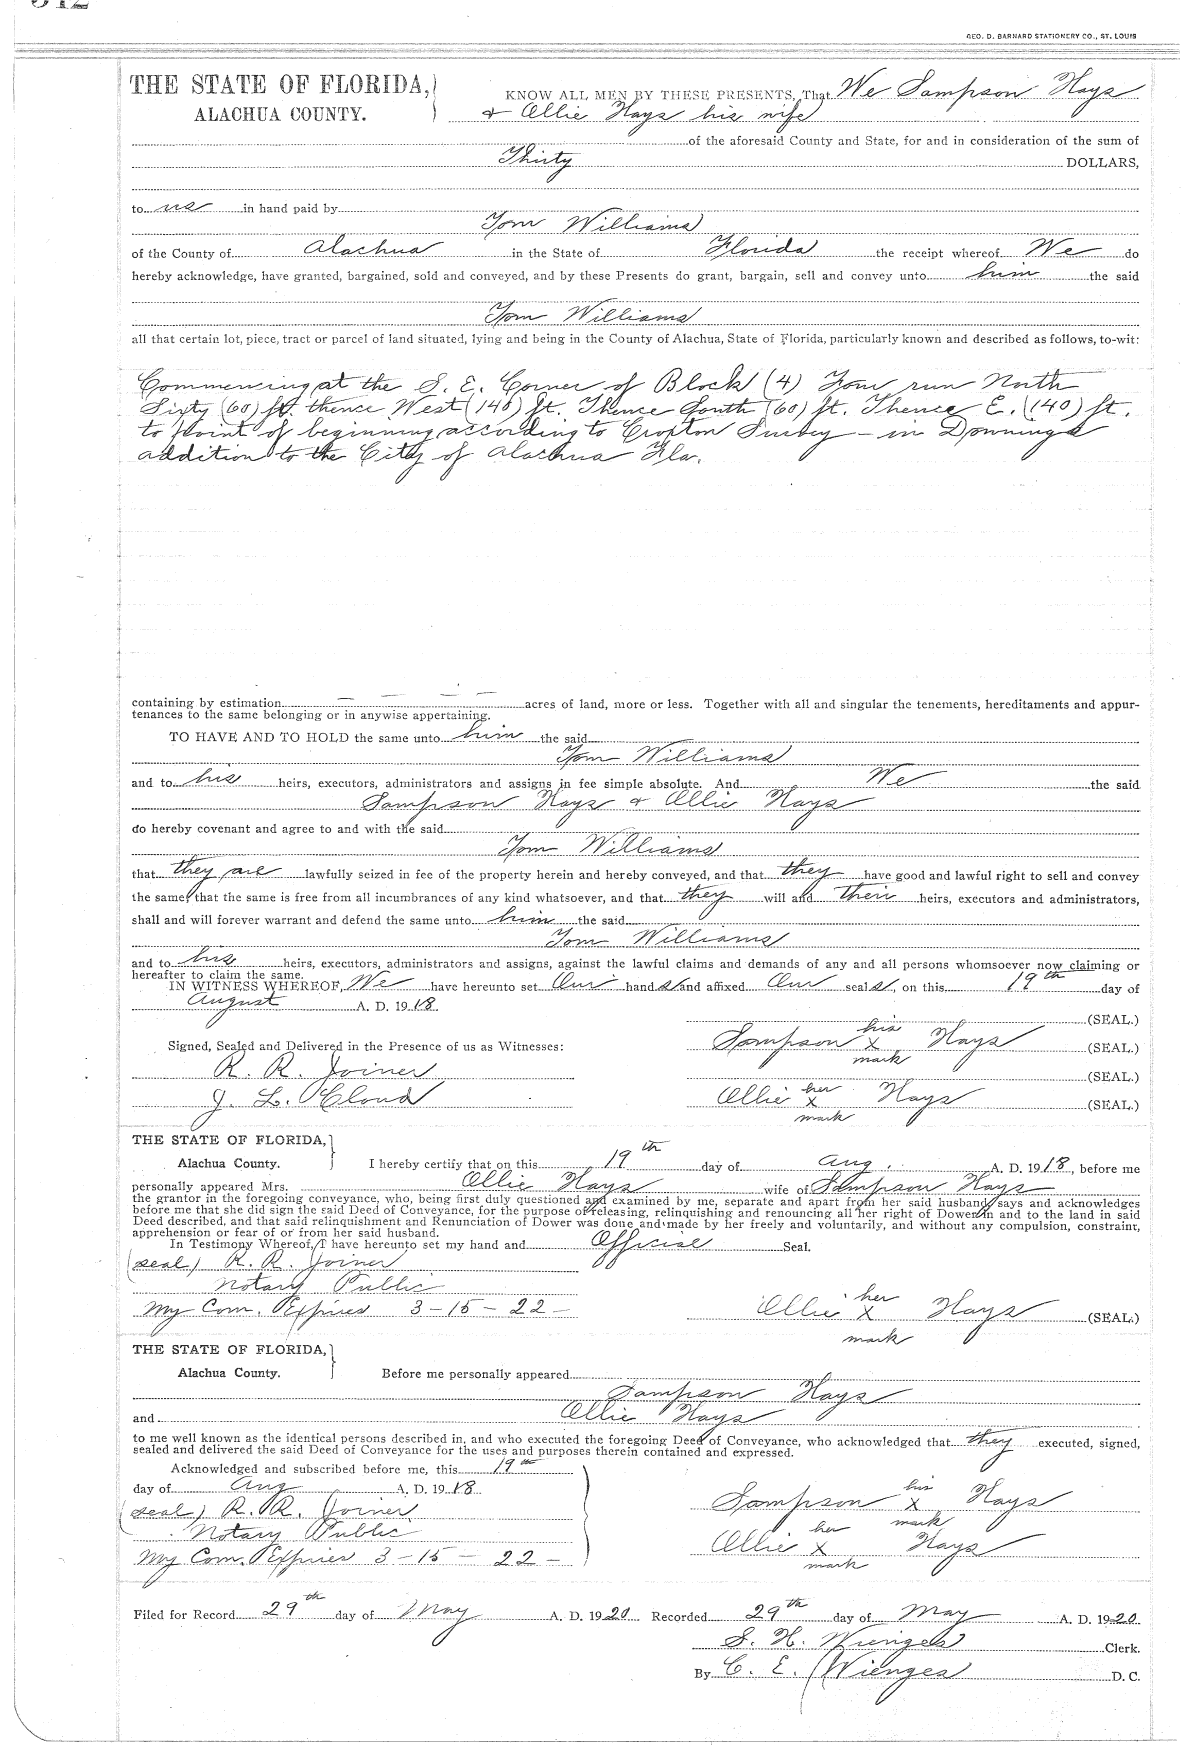 GEO. D. BARNARD STATIONERY CO., ST. LOUIS
THE STATE OF FLORIDA,
ALACHUA COUNTY.
KNOW ALL MEN BY THESE PRESENTS, That We Sampson Hays
& Ollie Hays his wife
of the aforesaid County and State, for and in consideration of the sum of
Thirty DOLLARS,
to us in hand paid by
Tom Williams
of the County of Alachua in the State of Florida the receipt whereof We do
hereby acknowledge, have granted, bargained, sold and conveyed, and by these Presents do grant, bargain, sell and convey unto him the said
Tom Williams
all that certain lot, piece, tract or parcel of land situated, lying and being in the County of Alachua, State of Florida, particularly known and described as follows, to-wit:
Commencing at the S. E. Corner of Block (4) Four run North
Sixty (60) ft. thence West (140) ft. Thence South (60) ft. Thence E. (140) ft.
to point of beginning according to Survey – in Downing's
addition to the City of Alachua Fla.
containing by estimation — — — — acres of land, more or less. Together with all and singular the tenements, hereditaments and appur-
tenances to the same belonging or in anywise appertaining.
TO HAVE AND TO HOLD the same unto him the said
Tom Williams
and to his heirs, executors, administrators and assigns in fee simple absolute. And We the said
Sampson Hays & Ollie Hays
do hereby covenant and agree to and with the said
Tom Williams
that they are lawfully seized in fee of the property herein and hereby conveyed, and that they have good and lawful right to sell and convey
the same; that the same is free from all incumbrances of any kind whatsoever, and that they will and their heirs, executors and administrators,
shall and will forever warrant and defend the same unto him the said
Tom Williams
and to his heirs, executors, administrators and assigns, against the lawful claims and demands of any and all persons whomsoever now claiming or
hereafter to claim the same.
IN WITNESS WHEREOF, We have hereunto set Our hand s and affixed Our seal s, on this 19th day of
August A. D. 1918.
(SEAL.)
Sampson his X mark Hays (SEAL.)
Signed, Sealed and Delivered in the Presence of us as Witnesses:
R. R. Joiner
(SEAL.)
J. L. Cloud
Ollie her X mark Hays (SEAL.)
THE STATE OF FLORIDA,
Alachua County.
I hereby certify that on this 19th day of Aug. A. D. 1918, before me
personally appeared Mrs. Ollie Hays wife of Sampson Hays
the grantor in the foregoing conveyance, who, being first duly questioned and examined by me, separate and apart from her said husband, says and acknowledges
before me that she did sign the said Deed of Conveyance, for the purpose of releasing, relinquishing and renouncing all her right of Dower in and to the land in said
Deed described, and that said relinquishment and Renunciation of Dower was done and made by her freely and voluntarily, and without any compulsion, constraint,
apprehension or fear of or from her said husband.
In Testimony Whereof, I have hereunto set my hand and Official Seal.
(seal) R. R. Joiner
Notary Public
My Com. Expires 3–15–22–
Ollie her X mark Hays (SEAL.)
THE STATE OF FLORIDA,
Alachua County.
Before me personally appeared
Sampson Hays
and Ollie Hays
to me well known as the identical persons described in, and who executed the foregoing Deed of Conveyance, who acknowledged that they executed, signed,
sealed and delivered the said Deed of Conveyance for the uses and purposes therein contained and expressed.
Acknowledged and subscribed before me, this 19th
day of Aug A. D. 1918
(seal) R. R. Joiner
Notary Public
My Com. Expires 3–15–22–
Sampson his X mark Hays
Ollie her X mark Hays
Filed for Record 29th day of May A. D. 1920 Recorded 29th day of May A. D. 1920
S. H. Wienges Clerk.
By C. E. Wienges D. C.